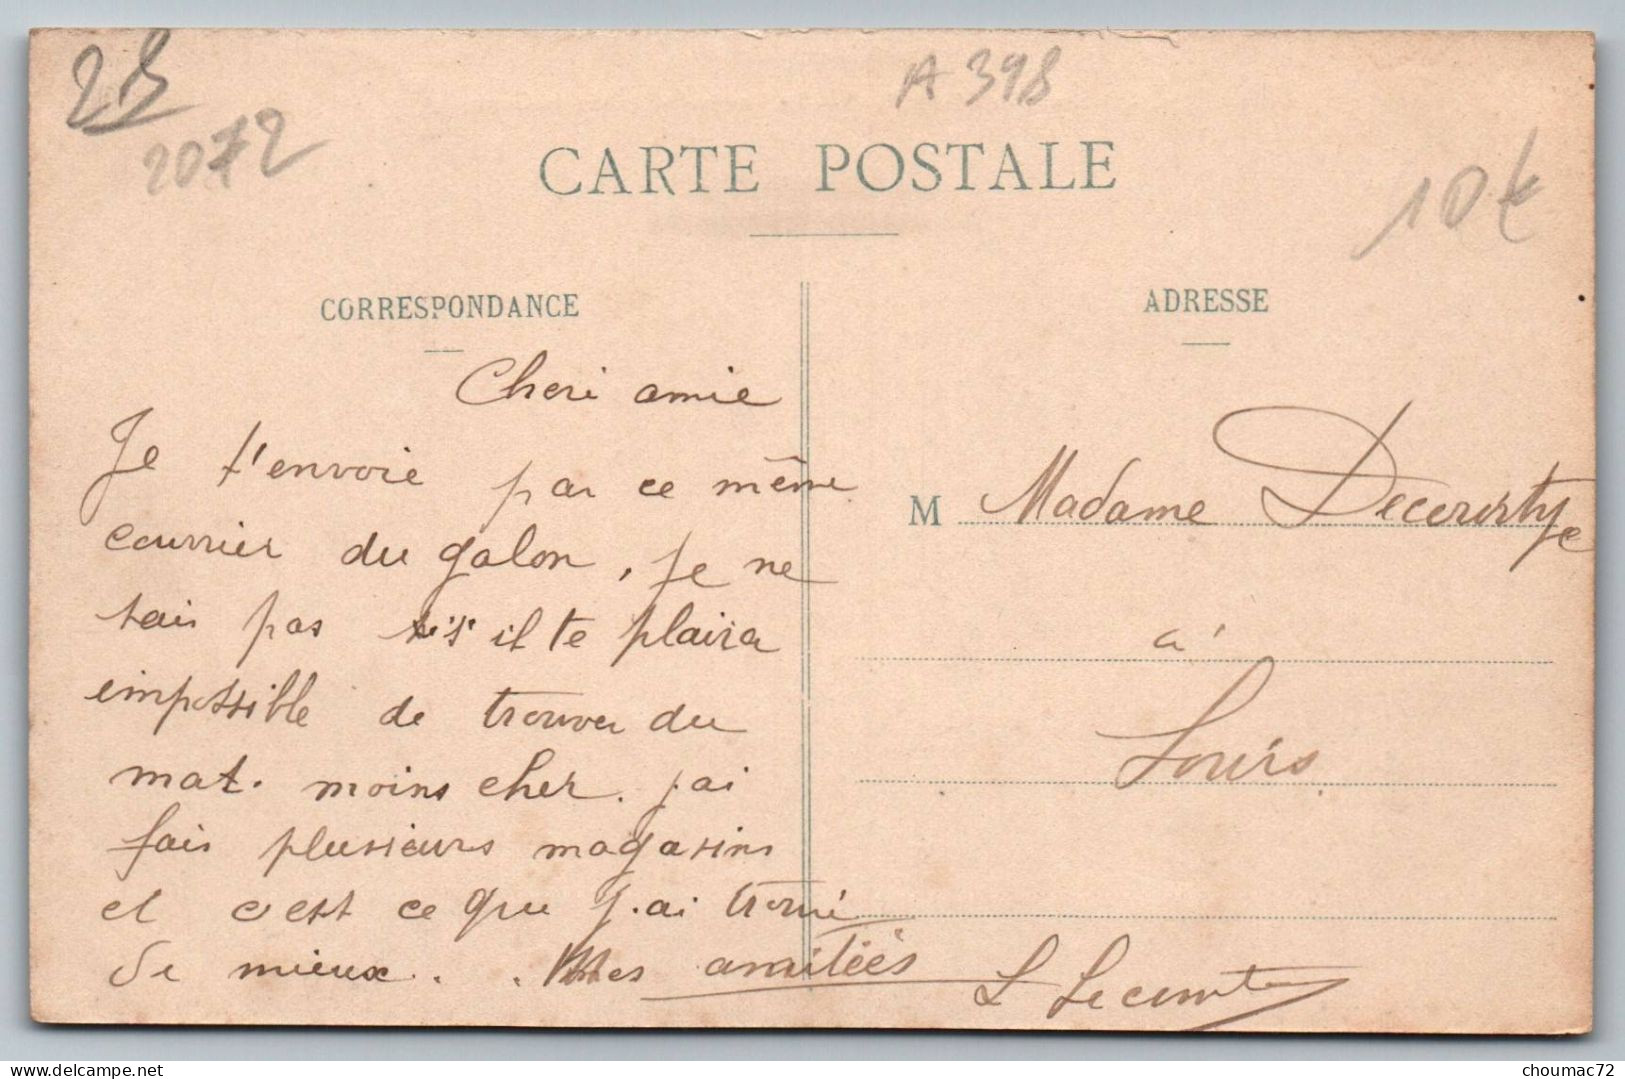 28
2072
A 398
10 €
CARTE POSTALE
CORRESPONDANCE
ADRESSE
Cheri amie
Je t'envoie par ce même
courrier du galon, je ne
sais pas s'il te plaira
impossible de trouver du
mat. moins cher. j'ai
fais plusieurs magasins
et c'est ce que j'ai trouvé
de mieux. Mes amitiés
L Lecomte
M Madame
à
Louis
delcampe.net
choumac72